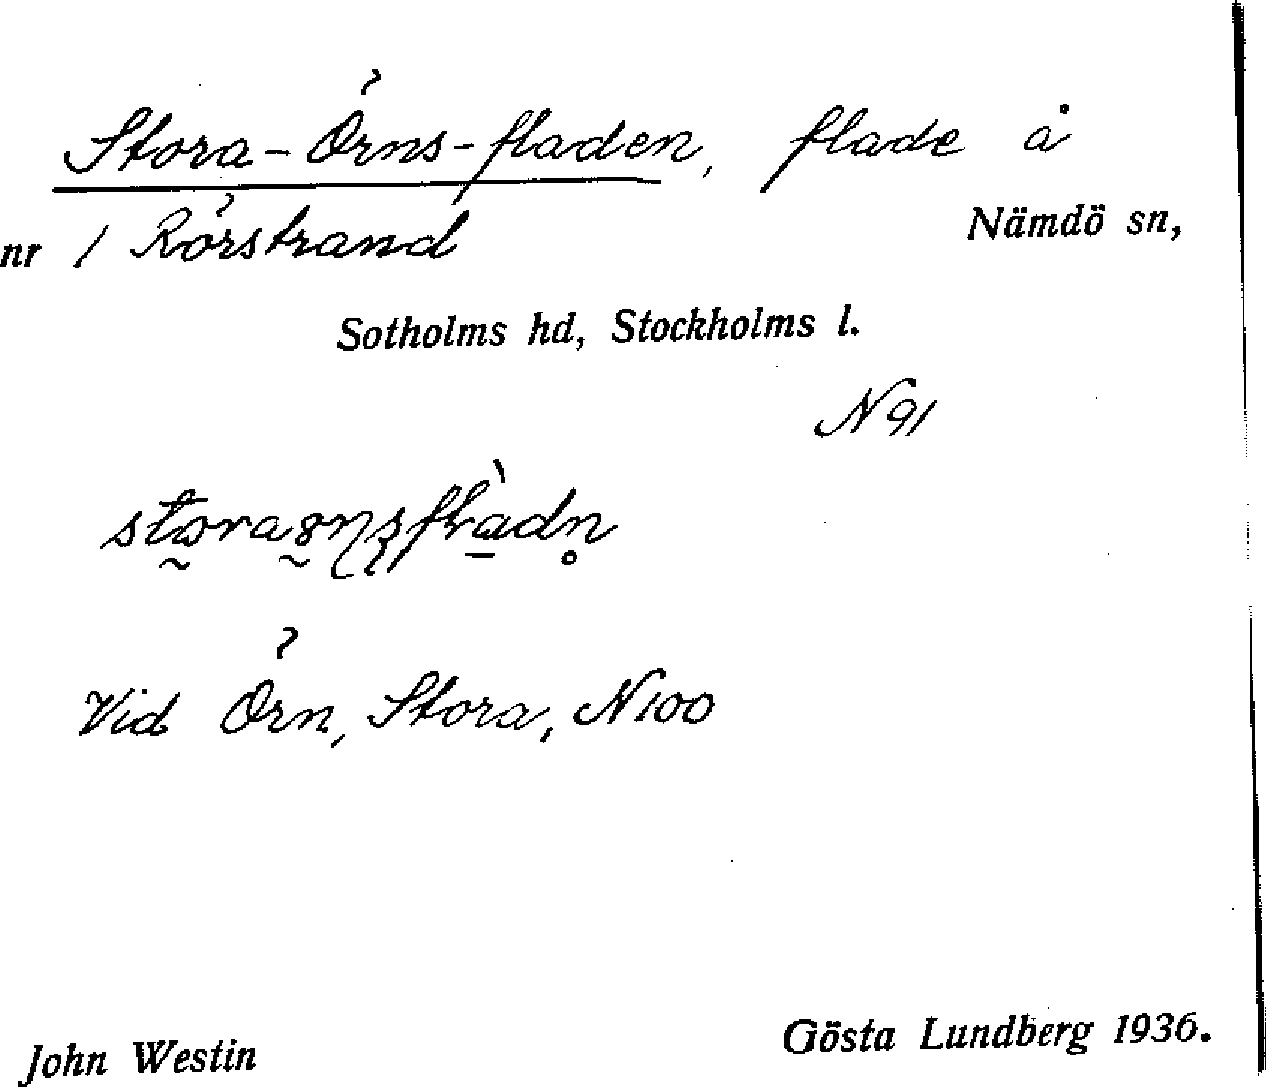 Stora-Örns-fladen, flade å
nr 1 Rörstrand Nämdö sn,
Sotholms hd, Stockholms l.
N91
Vid Örn, Stora, N100
John Westin Gösta Lundberg 1936.